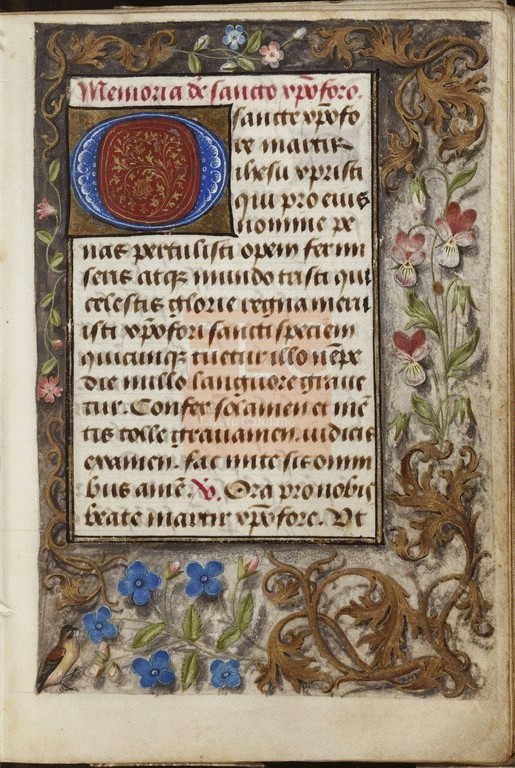 Memoria de sancto xp̄oforo.
O sancte xp̄ofo
re martir
ihesu xpristi
qui pro eius
nomine pe
nas pertulisti opem fer mi
seris atqꝫ mundo tristi qui
celestis glorie regna meru
isti xp̄ofori sancti speciem
quicunqꝫ tuetur illo nēpe
die nullo languore graue
tur. Confer solamen et mē
tis tolle grauamen. iudicis
examen. fac mite sit omni
bus amē. V. Ora pro nobis
beate martir xp̄ofore. Vt